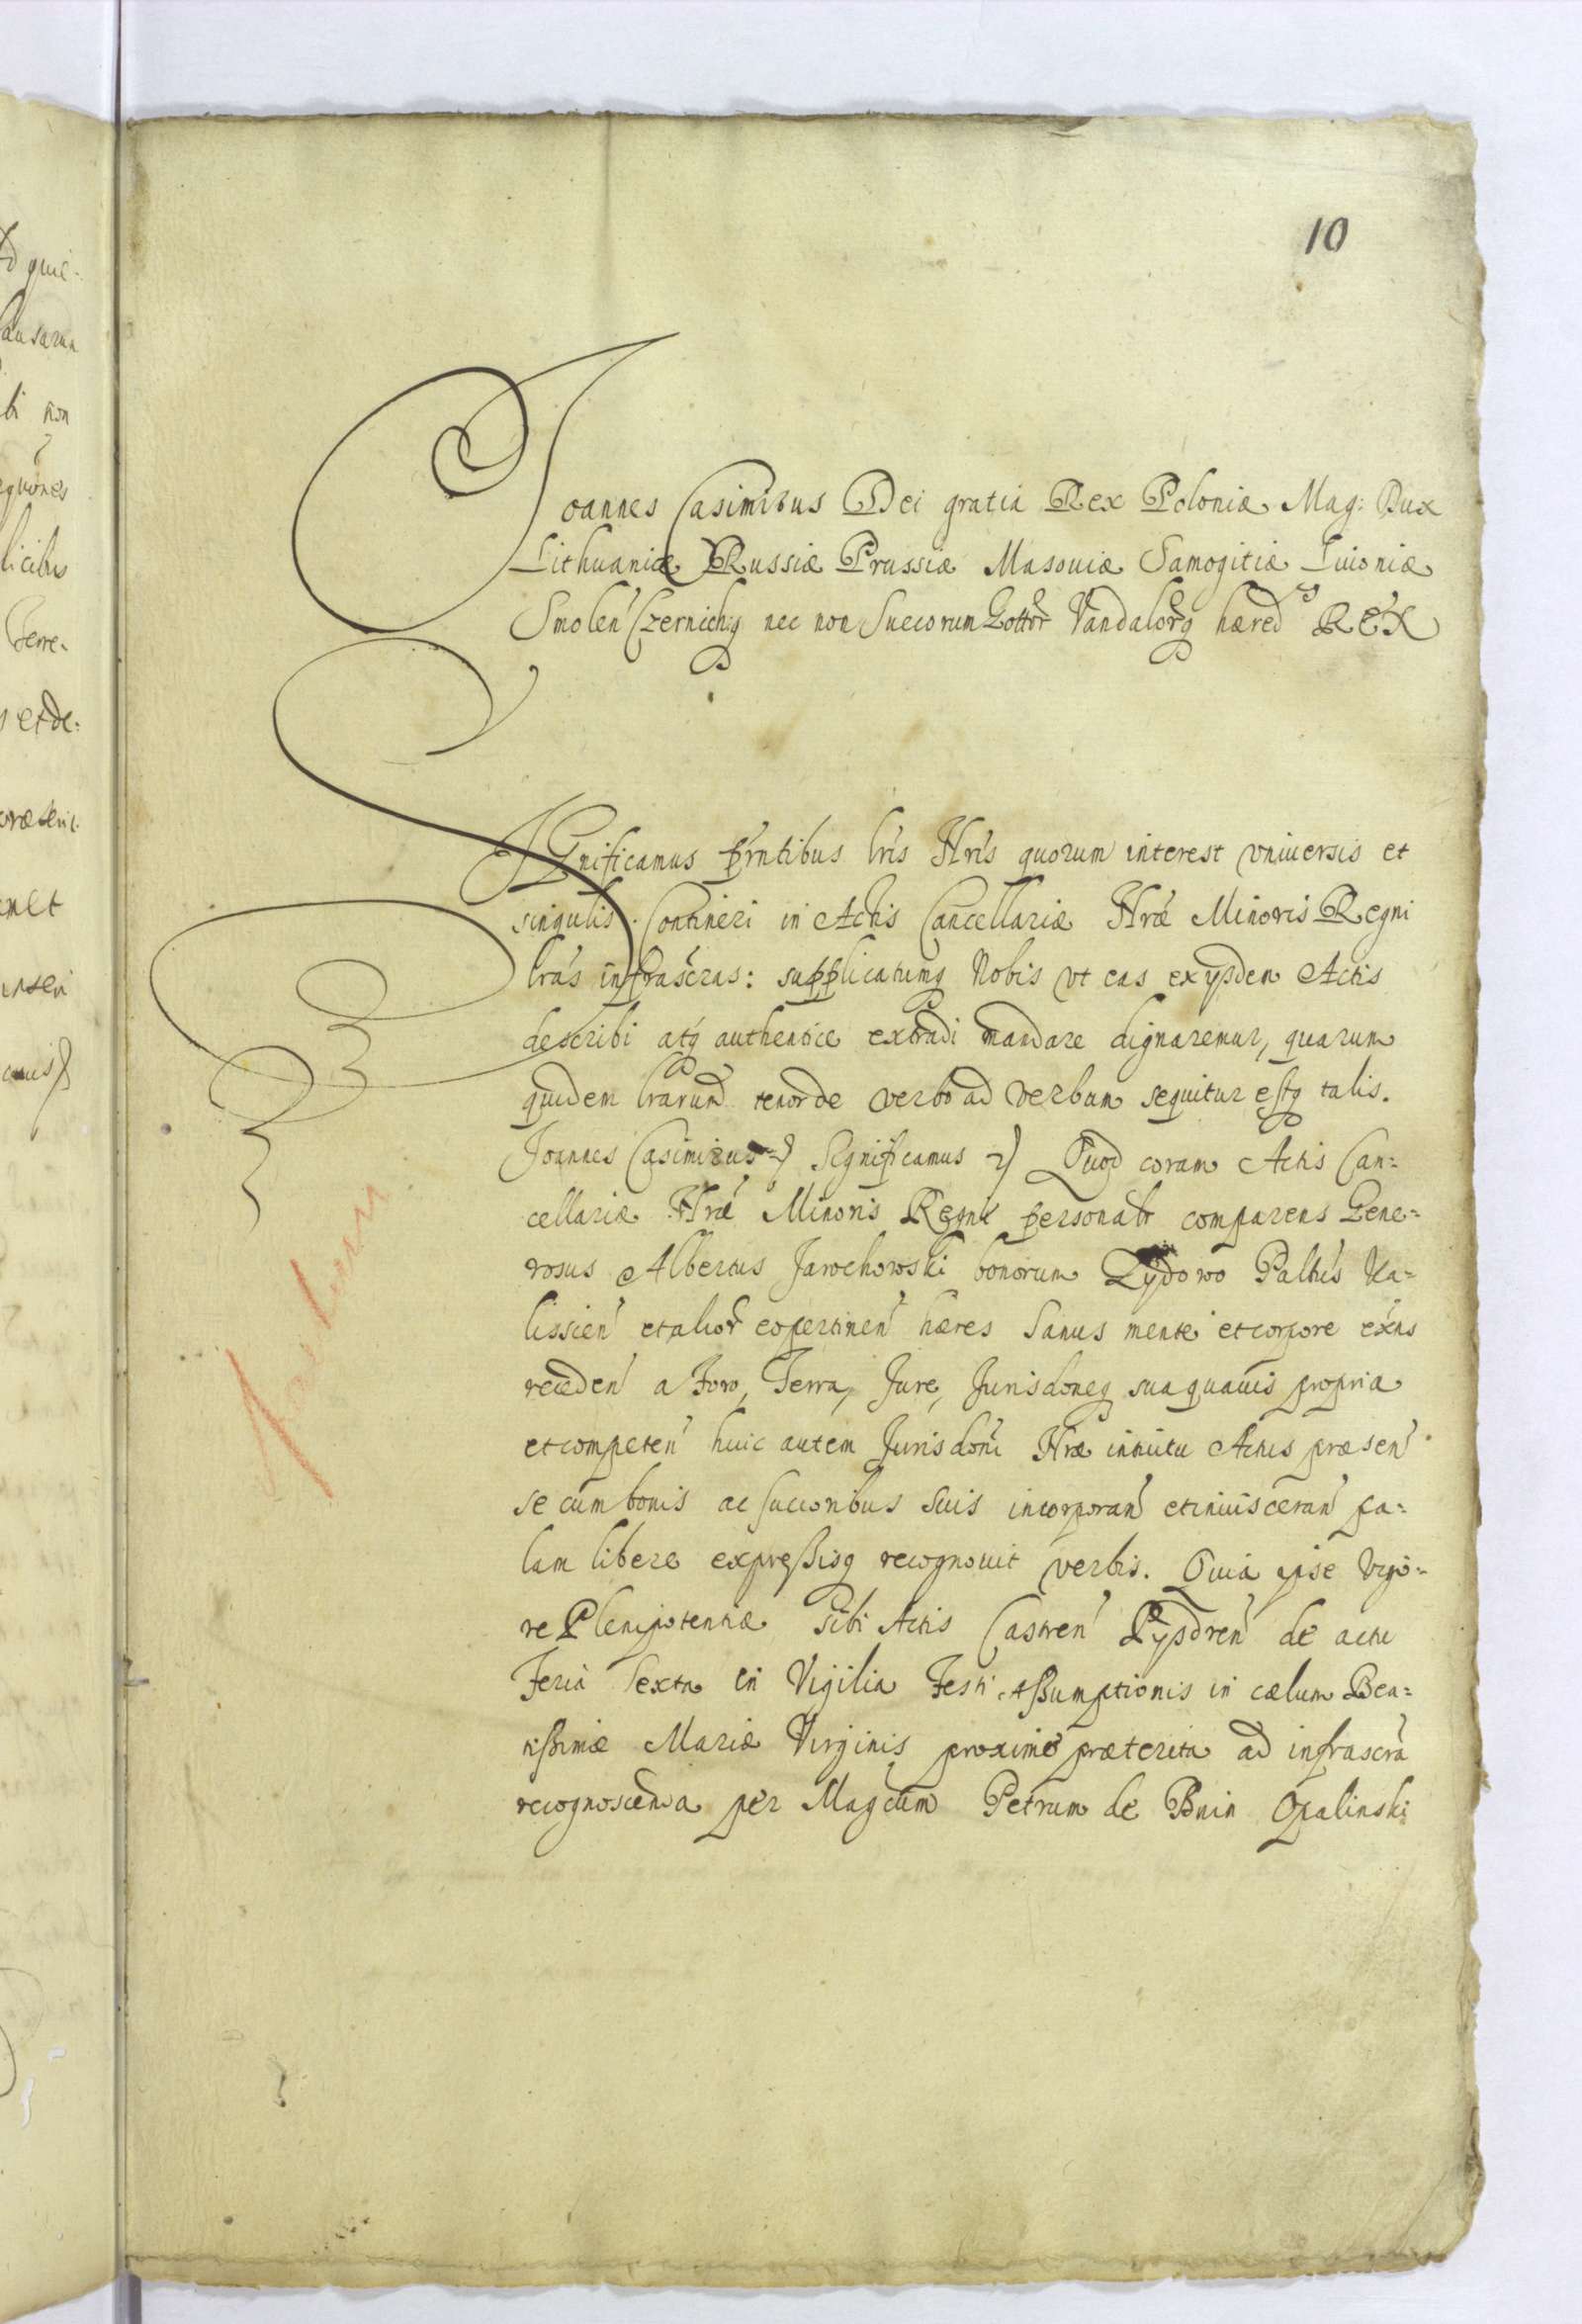 10
Joannes Casimirus Dei gratia Rex Poloniæ Mag: Dux
Lithuaniæ Russiæ Prussiæ Masouiæ Samogitiæ Liuoniæ
Smolen̄ Czernichq nec non Suecorum Gottor̄ Vandalorq hæred REX
SIGnificamus p̄ntibus lr̄is Nr̄is quorum interest vniuersis et
singulis. Contineri in Actis Cancellariæ Nr̄æ Minoris Regni
lr̄as infrascr̄as: supplicatumq Nobis vt eas ex ijsdem Actis
describi atq authentice extradi mandare dignaremur, quarum
quidem lr̄arum tenor de verbo ad verbum sequitur estq talis.
Joannes Casimirus Significamus Quod coram Actis Can=
cellariæ Nr̄æ Minoris Regni personalr̄ comparens Gene=
rosus Albertus Jarochowski bonorum Zydowo Paltū̄s Ka=
lissien̄ et alior̄ eo pertinen̄ hæres Sanus mente et corpore ex̄ns
receden̄ a Foro, Terra, Jure, Jurisdōneq sua quauis propria
et competen̄ huic autem Jurisdōni Nr̄æ intuitu Actus præsen̄
se cum bonis ac succ̄oribus suis incorporan̄ et inuisceran̄ pa=
lam libere expreßisq recognouit verbis. Quia ipse Vigo=
re Plenipotentiæ sibi Actis Castren̄ Pysdren̄ de actu
Feria Sexta in Vigilia Festi Aßumptionis in cælum Bea=
tißimæ Mariæ Virginis proxime præterita ad infrascr̄a
recognoscenda per Magcum Petrum de Bnin Opalinski